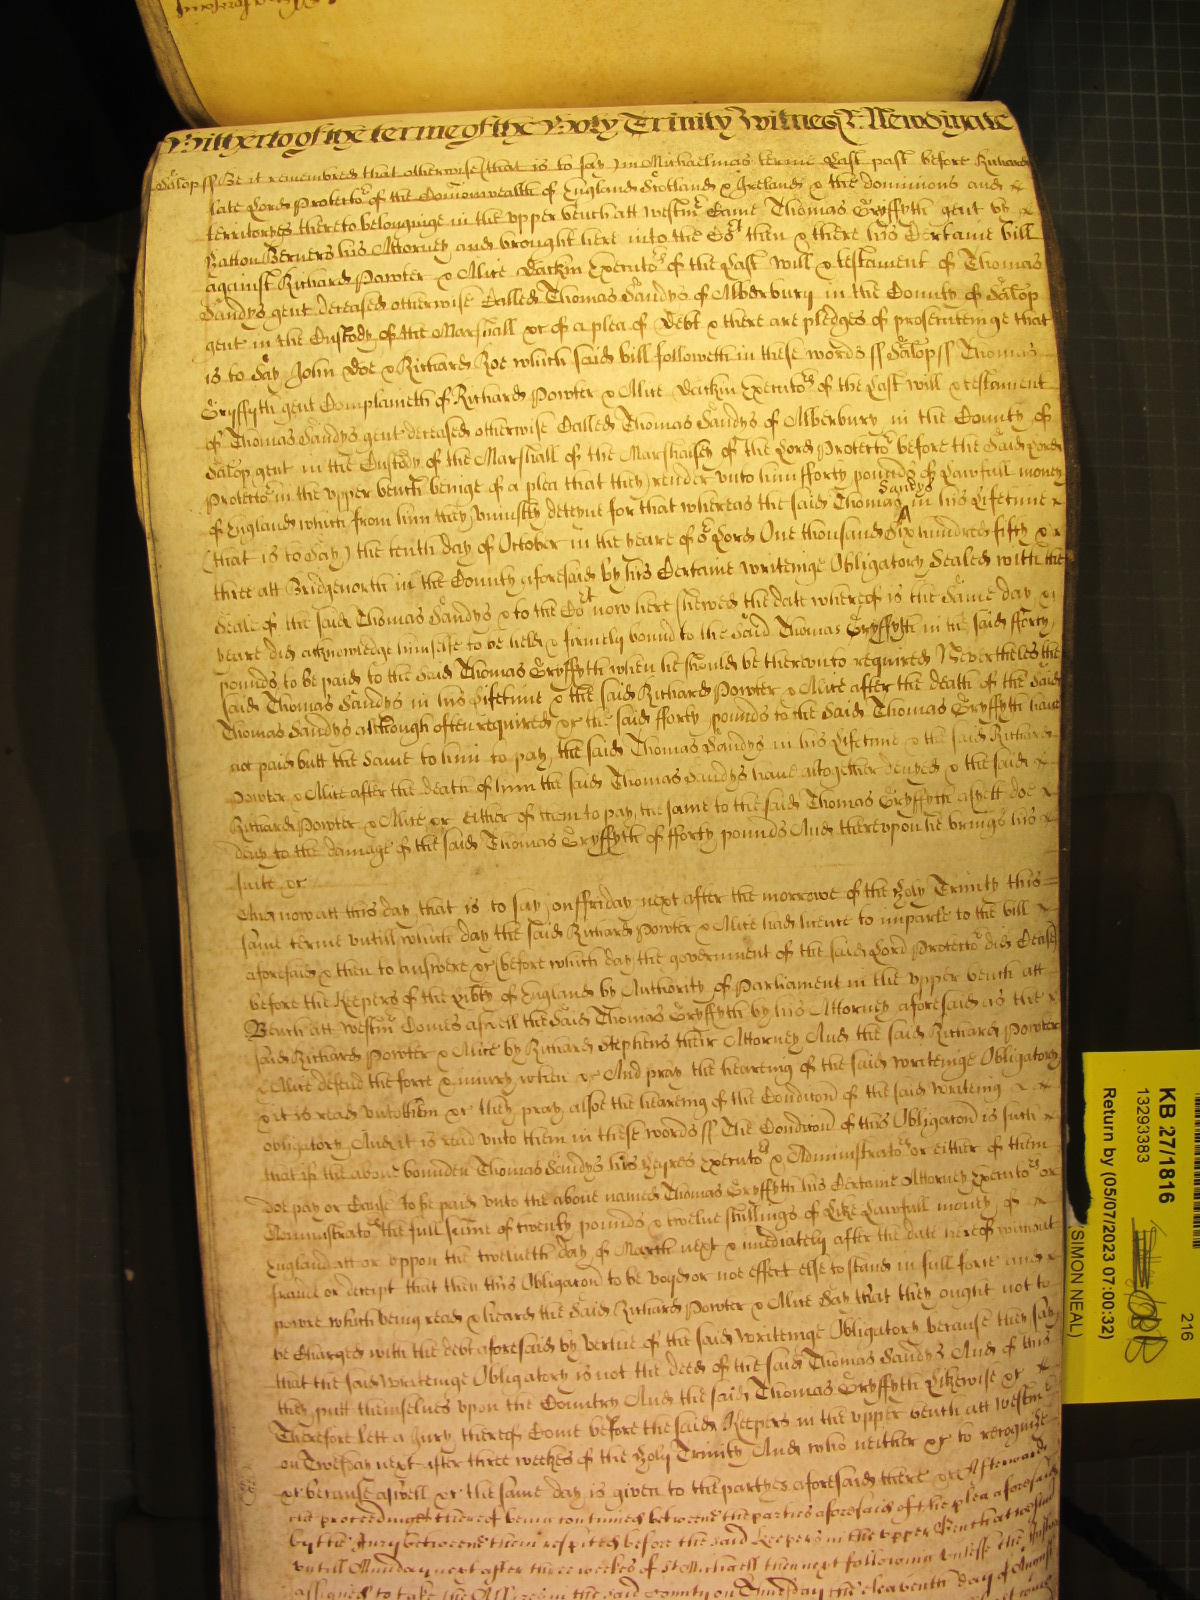 Hitherto of the terme of the Holy Trinity Witnes R: Newdigate
Salop ss Be it remembred that otherwise (that is to say) in Michaelmas terme Last past before Richard
late Lord Protector of the Comonwealth of England Scotland & Ireland & the dominions and
territoryes thereto belonginge in the upper bench att Westmr Came Thomas Gryffyth gent by
Berners his Attorney and brought here into the Cort then & there his Certaine bill
against Richard Powter & Alice Executors of the Last will & testament of Thomas
Sandys gent deceased otherwise Called Thomas Sandys of Alberbury in the County of Salop
gent in the Custody of the Marshall &c of a plea of Debt & there are pledges of prosecuteinge that
is to say John Doe & Richard Roe which said bill followeth in these words ss Salop ss Thomas
Gryffyth gent Complaineth of Richard Powter & Alice Executors of the Last will & testament
of Thomas Sandys gent deceased otherwise Called Thomas Sandys of Alberbury in the County of
Salop gent in the Custody of the Marshall of the Marshalsey of the Lord Protector before the said Lord
Protector in the upper bench beinge of a plea that they render unto him fforty pounds of Lawfull money
of England which from him they uniustly deteyne for that whereas the said Thomas Sandys in his Lifetime
(that is to say) the tenth day of October in the yeare of or Lord One thousand Six hundred fifty &
three att Bridgenorth in the County aforesaid by his Certaine writeinge Obligatory Sealed with the
Seale of the said Thomas Sandys & to the Cort now here shewed the date whereof is the same day &
yeare did acknowledge himselfe to be held & firmely bound to the said Thomas Gryffyth in the said fforty
pounds to be paid to the said Thomas Gryffyth when he should be thereunto required Neverthelesse the
said Thomas Sandys in his Lifetime & the said Richard Powter & Alice after the death of the said
Thomas Sandys although often required &c the said fforty pounds to the said Thomas Gryffyth have
not paid butt the same to him to pay the said Thomas Sandys in his Lifetime & the said Richard
Powter & Alice after the death of him the said Thomas Sandys have altogether denyed & the said
Richard Powter & Alice &c either of them to pay the same to the said Thomas Gryffyth as yett doe
deny to the damage of the said Thomas Gryffyth of fforty pounds And thereupon he brings his
suite &c
And now att this day that is to say on ffriday next after the morrowe of the Holy Trinity this
same terme untill which day the said Richard Powter & Alice had licence to imparle to the bill
aforesaid & then to answere &c (before which day the government of the said Lord Protector did Cease)
before the Keepers of the Libty of England by Authority of Parliament in the upper bench att
Bench att Westmr Comes aswell the said Thomas Gryffyth by his Attorney aforesaid as the
said Richard Powter & Alice by Richard Stephens their Attorney And the said Richard Powter
& Alice defend the force & iniury when &c And pray the heareing of the said writeinge Obligatory
& it is read unto them &c they pray alsoe the heareing of the Condicon of the said writeing
obligatory And it is read unto them in these words ss The Condicon of this Obligacon is such
that if the above bounden Thomas Sandys his heyres executors & Administrators or either of them
doe pay or Cause to be paid unto the above named Thomas Gryffyth his Certaine Attorney Executors or
Administrators the full sume of twenty pounds & twelve shillings of Like Lawfull money of
England att or uppon the twelueth day of March next & imediately after the date hereof without
fraud or deceipt that then this Obligacon to be voyd or noe effect else to stand in full force and
powre which being read & heard the said Richard Powter & Alice say that they ought not to
be Charged with the debt aforesaid by vertue of the said writeinge Obligatory because they say
that the said writeinge Obligatory is not the deed of the said Thomas Sandys And of this
they putt themselves upon the Country And the said Thomas Gryffyth Likewise &c
Therefore lett a Jury thereof Come before the said Keepers in the upper bench att Westmr
on Twesday next after three weekes of the Holy Trinity And who neither &c to recognize
&c because aswell &c the same day is given to the partyes aforesaid there &c Afterwards
the proceedings thereof being continued betweene the parties aforesaid of the plea aforesaid
by the Jury betweene them respited before the said Keepers in the upper Bench at Westmr
untill Munday next after three weekes of St Michaell then next following unlesse the
assigned to take the Assizes in the said County on Thursday the eleaventh day of August
KB 27/1816
13293383
Return by (05/07/2023 07:00:32)
(SIMON NEAL)
216